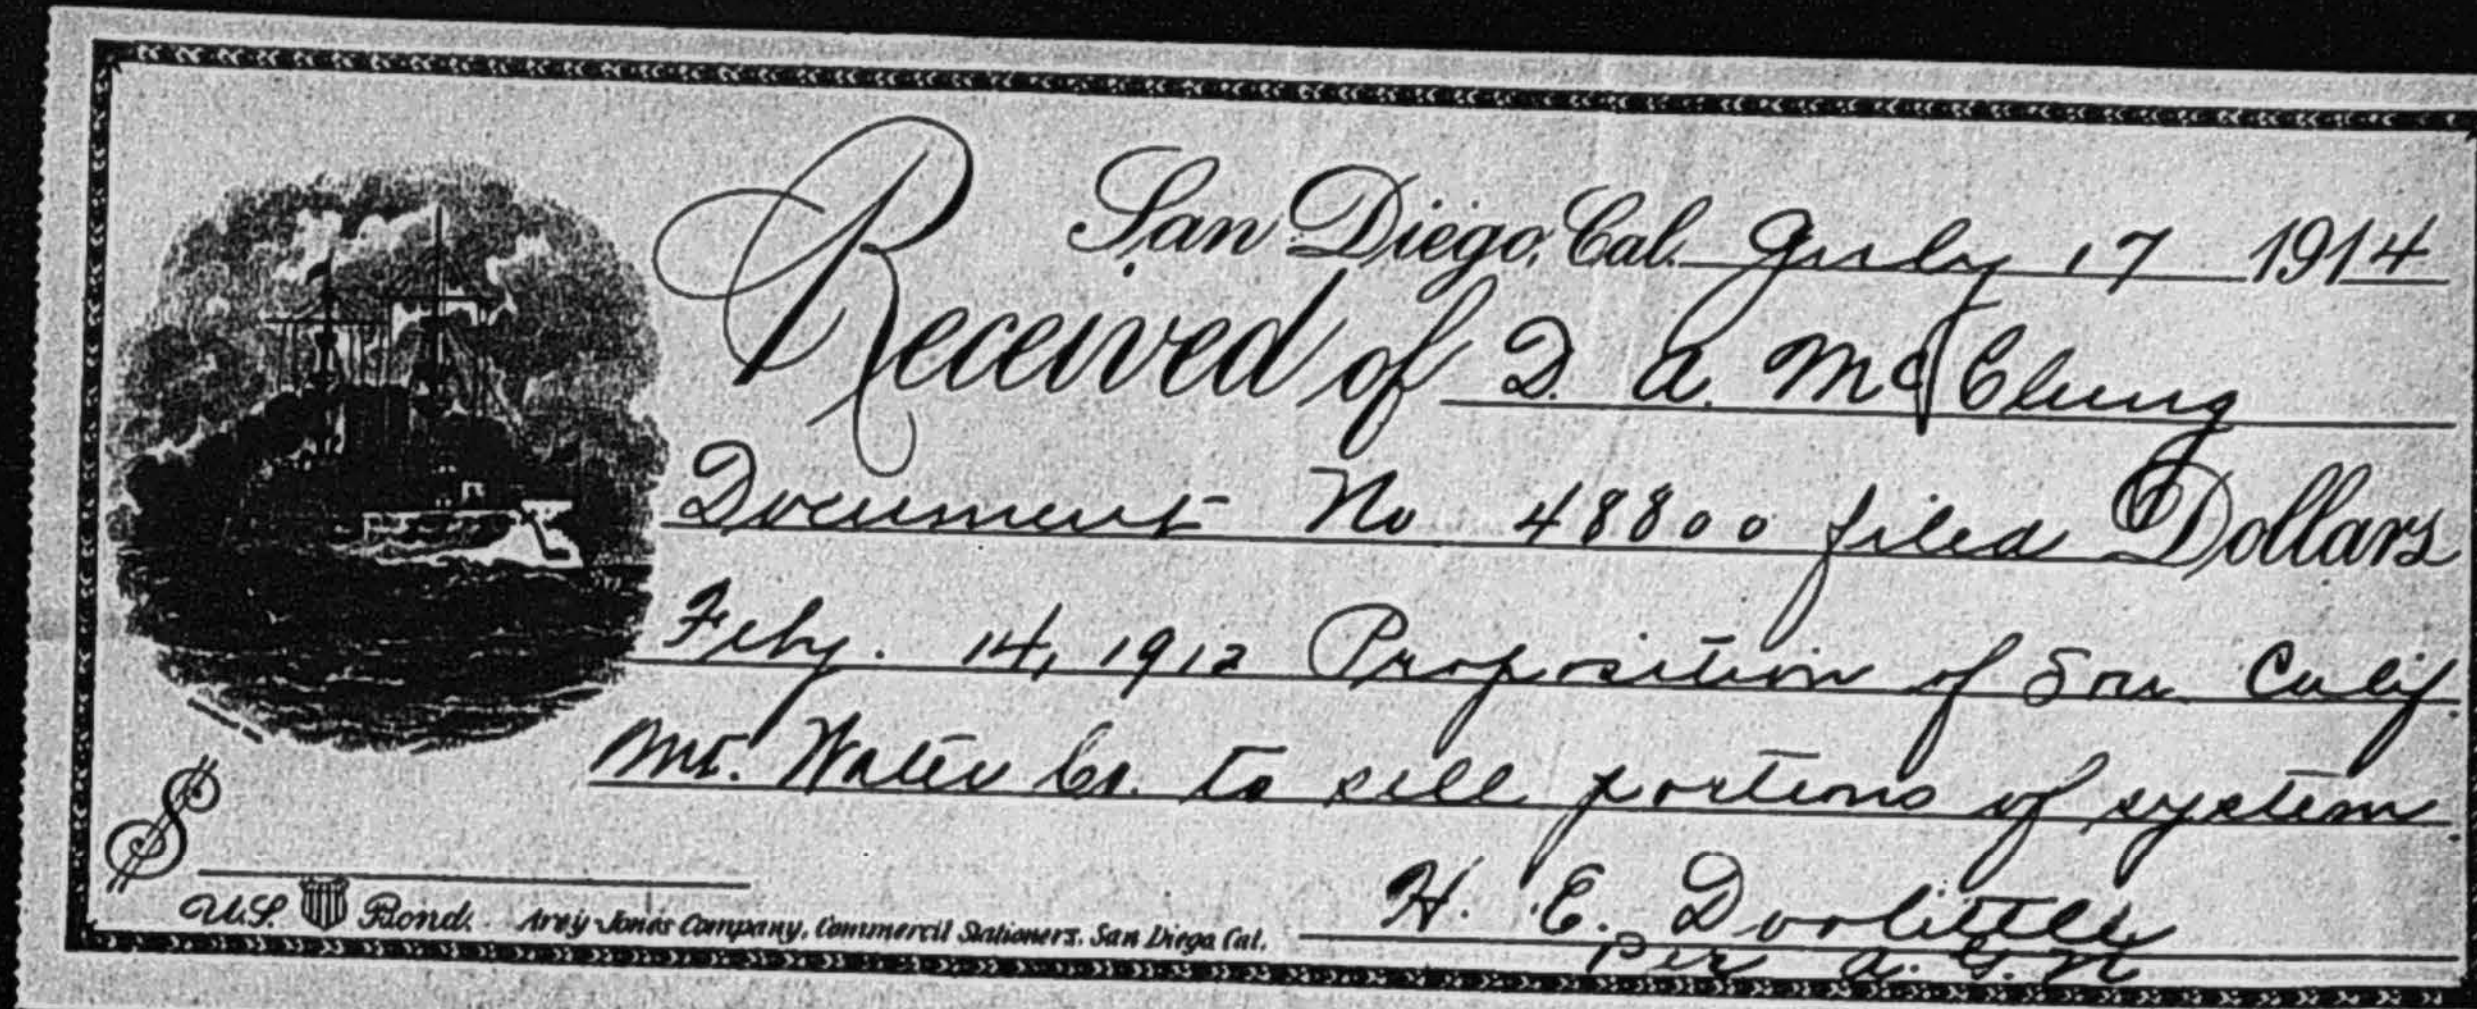 San Diego, Cal. July 17 1914
Received of D. A. McClung
Document No 48800 filed Dollars
Feby. 14, 1912 Proposition of Sou Calif.
Mt. Water Co. to sell portions of system.
$
H. E. Doolittle
Per A. G. N
U.S. Bond. Arey-Jones Company, Commercil Stationers. San Diego Cal.